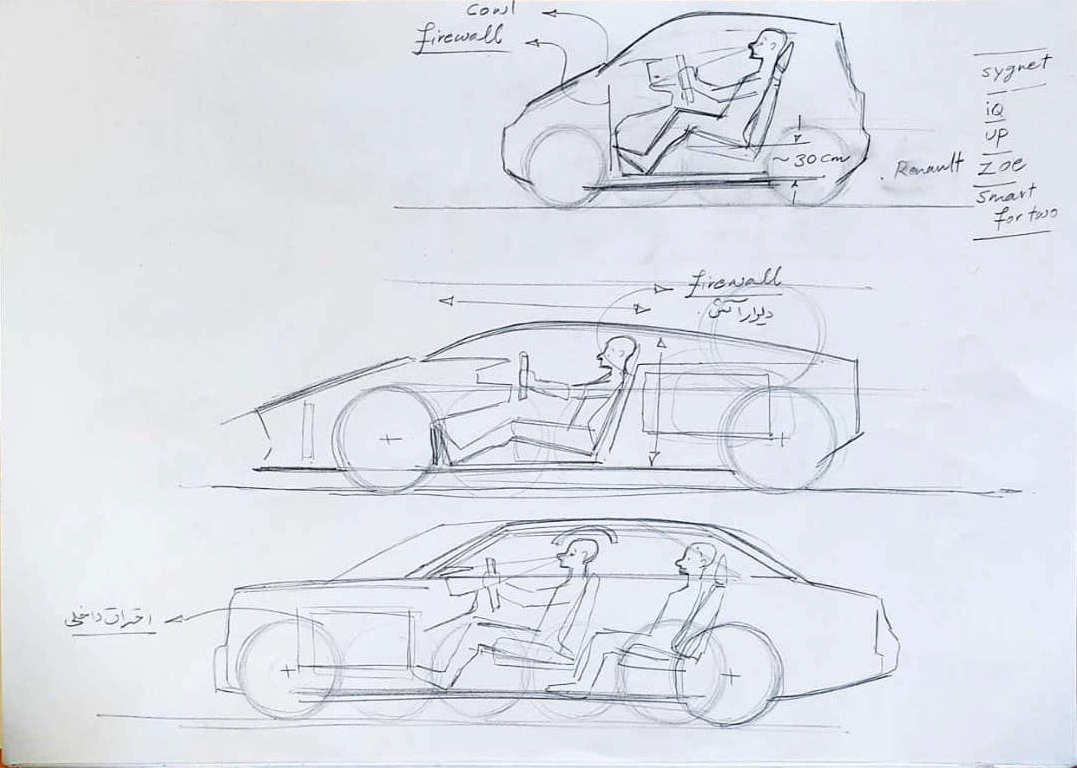 cowl
firewall
sygnet
iQ
up
~30cm
. Renault Zoe
smart
for two
firewall
دیوار آتش
احتراق داخلی